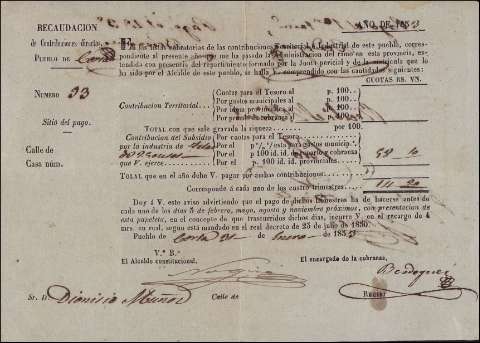 RECAUDACION
de Contribuciones directas.
PUEBLO DE
AÑO DE 1853
En las listas cobratorias de las contribuciones territorial é industrial de este pueblo, corres-
pondiente al presente año, que me ha pasado la administracion del ramo en esta provincia, es-
tendidas con presencia del repartimiento formado por la Junta pericial y de la matrícula que lo
ha sido por el Alcalde de este pueblo, se halla V. comprendido con las cantidades siguientes:
CUOTAS RS. VN.
NUMERO 33
Sitio del pago.
Calle de
Casa núm.
Contribucion Territorial.
Cuotas para el Tesoro al p. 100.
Por gastos municipales al p. 100.
Por idem provinciales al p. 100.
Por premio de cobranza al p. 100.
TOTAL con que sale gravada la riqueza por 100.
Contribucion del Subsidio
por la industria de
que V. ejerce.
Por cuotas para el Tesoro.
Por el p% para gastos municip.
Por el p 100 id. de premio y cobranza
Por el p 100 id. id. provinciales.
58
TOTAL que en el año debe V. pagar por ambas contribuciones.
Corresponde á cada uno de los cuatro trimestres. 14 20
Doy á V. este aviso advirtiendo que el pago de dichos trimestres ha de hacerse antes de
cada uno de los dias 5 de febrero, mayo, agosto y noviembre próximos, con presentacion de
esta papeleta, en el concepto de que trascurridos dichos dias, incurre V. en el recargo de 4
mrs. en real, segun está mandado en el real decreto de 23 de julio de 1850.
Pueblo de de Enero de 1853
V.° B.°
El Alcalde constitucional.
El encargado de la cobranza,
Sr. D. Dionisio Muñoz Calle de